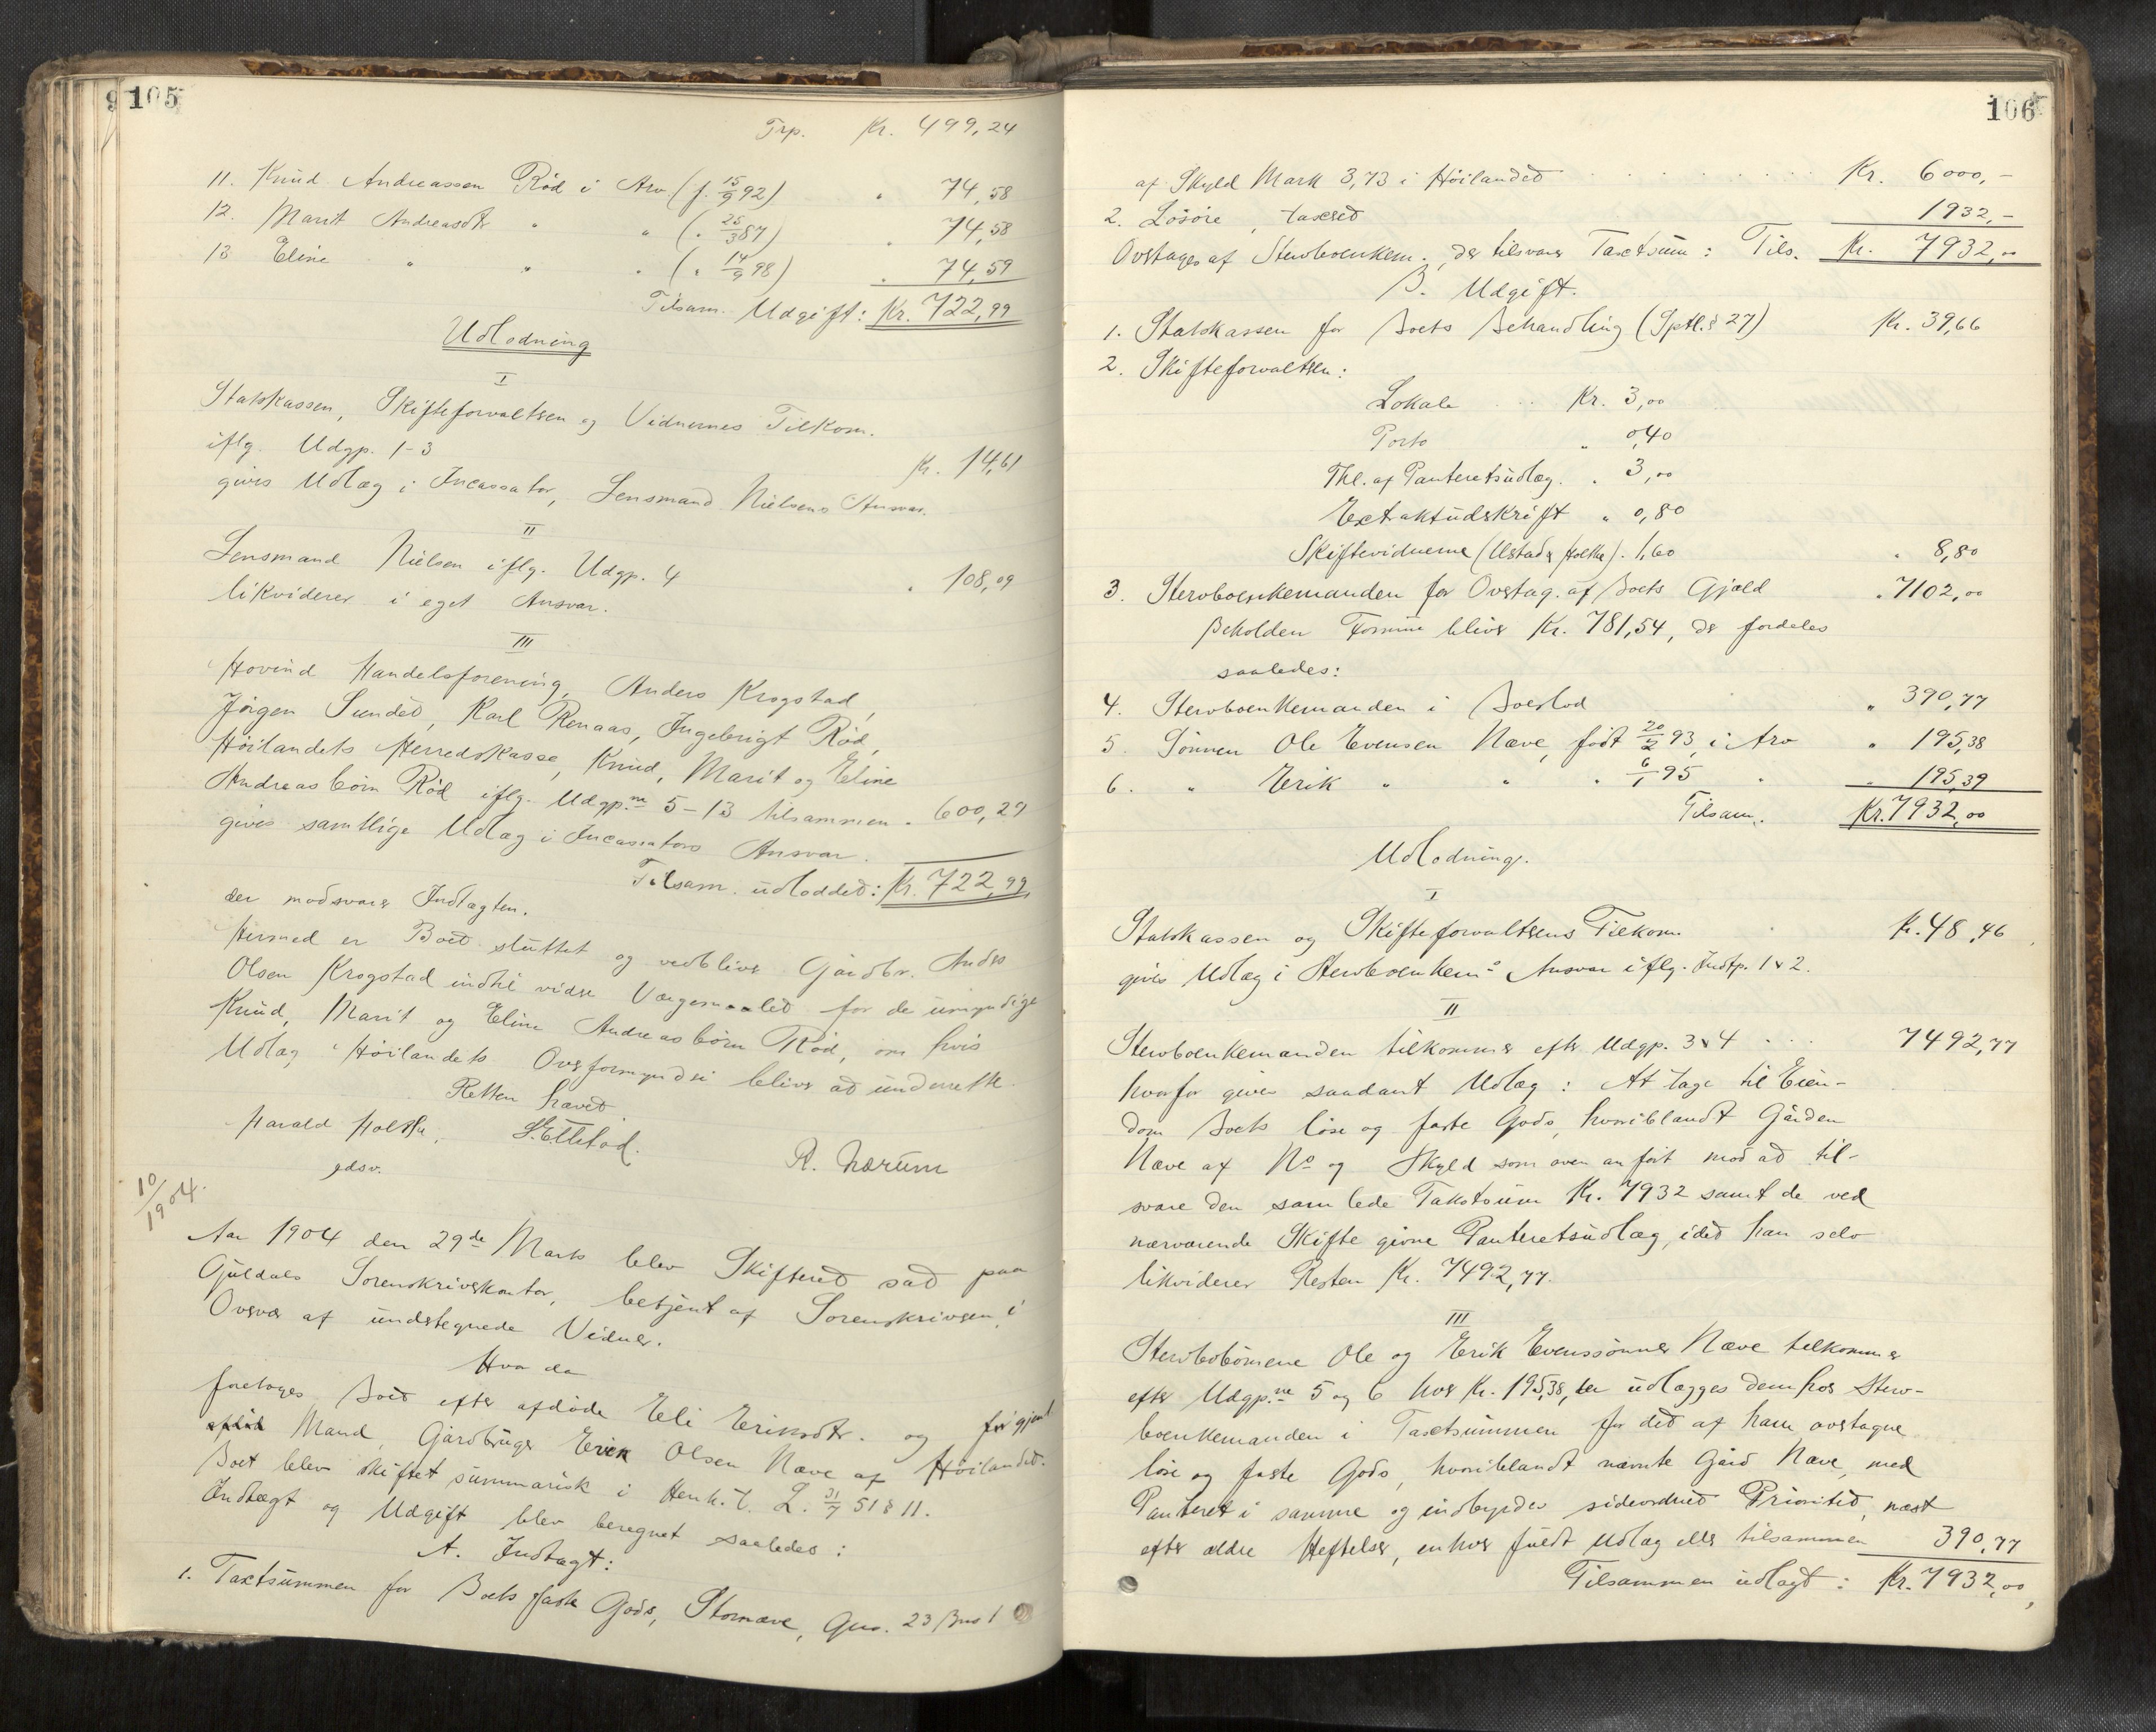 105
Trp. Kr. 499,24
11. Knud Andreassen Rød i Arv (f. 15/9 92) " 74,58
12. Marit Andreasdtr " " ( " 25/3 87) " 74,58
13 Eline " " " ( " 14/9 98) " 74,59
Tilsam. Udgift: Kr. 722,99
Udlodning
I
Statskassen, Skifteforvaltren og Vidnernes Tilkom.
iflg. Udgp. 1-3 Kr. 14,61
gives Udlæg i Incassator, Lensmand Nielsens Ansvar.
II
Lensmand Nielsen iflg. Udgp. 4 " 108,09
likviderer i eget Ansvar.
III
Hovind Handelsforening, Anders Krogstad,
Jörgen Sundet, Karl Renaas, Ingebrigt Rød,
Höilandets Herredskasse, Knud, Marit og Eline
Andreasbörn Rød iflg. Udgp.ne 5-13 tilsammen " 600,29
gives samtlige Udlæg i Incassators Ansvar.
Tilsam. udloddet: Kr. 722,99
der modsvarer Indtægten.
Hermed er Boet sluttet og vedbliver Gårdbr. Anders
Olsen Krogstad indtil videre Værgemaalet for de umyndige
Knud, Marit og Eline Andreasbörn Rød, om hvis
Udlæg Höilandets Overformynderi bliver at underrette.
Retten hævet
Harald Holthe, S. Ellstad. R. Nærum
edsv.
10/1904.
Aar 1904 den 29de Marts blev Skifteret sat paa
Guldals Sorenskriverkontor, betjent af Sorenskriveren, i
Overvær af undertegnede Vidner.
Hvor da
foretoges Boet efter afdöde Eli Eriksdtr. og før gjenl
Mand, Gårdbruger Even Olsen Næve af Höilandet.
Boet blev skiftet summarisk i Henh. t. L. 31/7 51 § 11.
Indtægt og Udgift blev beregnet saaledes:
A. Indtægt:
1. Taxtsummen for Boets faste Gods, Stornæve, Gno. 23 Bno 1
106
af Skyld Mark 3,73 i Höilandet Kr. 6000,-
2. Lösöre, taxeret 1932,-
Overtages af Stervboenkem., der tilsvarer Taxtsum: Tils. Kr. 7932,00
B. Udgift.
1. Statskassen for Boets Behandling (Sptl. § 27) Kr. 39,66
2. Skifteforvaltren:
Lokale Kr. 3,00
Porto " 0,40
Thl. af Panteretsudlæg. " 3,00
Extraktudskrift " 0,80
Skiftevidnerne (Ulstad & Holthe) " 1,60 " 8,80
3. Stervboenkemanden for Overtag. af Boets Gjæld " 7102,00
Beholden Formue bliver Kr. 781,54, der fordeles
saaledes:
4. Stervboenkemanden i Boeslod " 390,77
5. Sönnen Ole Evensen Næve, født 20/2 93, i Arv " 195,38
6. " Erik " " " 6/1 95 " " 195,39
Tilsam. Kr. 7932,00
Udlodning.
I
Statskassen og Skifteforvaltrens Tilkom. Kr. 48,46
gives Udlæg i Stervboenkems Ansvar iflg. Indtp. 1 & 2.
II
Stervboenkemanden tilkommer efter Udgp. 3 & 4 . . . 7492,77
hvorfor gives saadant Udlæg: At tage til Eien-
dom Boets löse og faste Gods, hvoriblandt Gården
Næve af No og Skyld som oven anfört mod at til-
svare den samlede Takstsum Kr. 7932 samt de ved
nærværende Skifte givne Panteretsudlæg, idet han selv
likviderer Resten Kr. 7492,77.
III
Stervbobörnene Ole og Erik Evenssönner Næve tilkommer
efter Udgp.ne 5 og 6 hver Kr. 195,38, der udlægges dem hos Sterv-
boenkemanden i Taxtsummen for det af ham overtagne
löse og faste Gods, hvoriblandt nævnte Gård Næve, med
Panteret i samme og indbyrdes sideordnet Prioritet, næst
efter ældre Heftelser, enhver fuldt Udlæg eller tilsammen 390,77
Tilsammen udlagt: Kr. 7932,00,